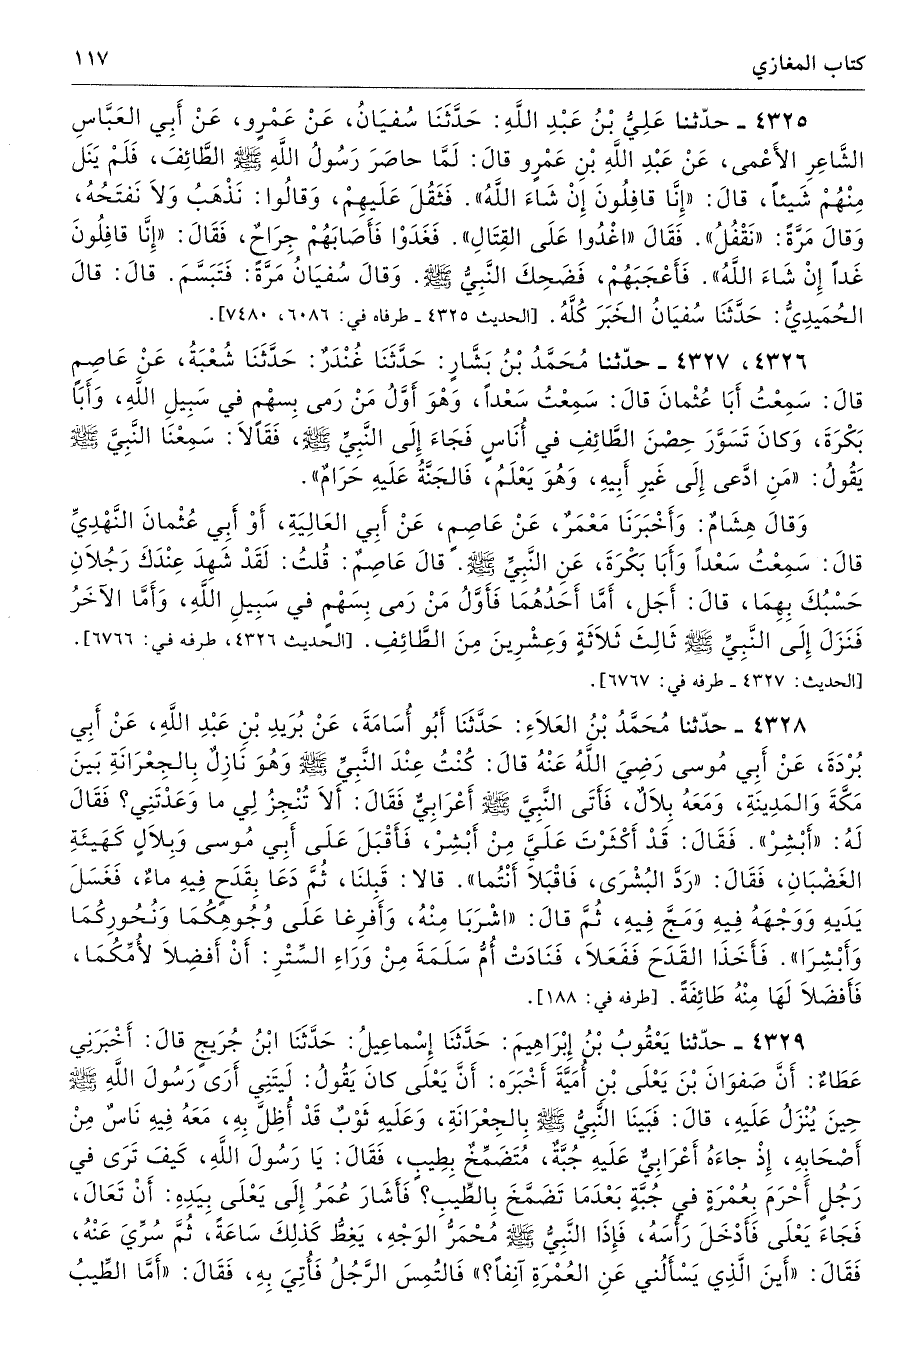 كتاب المغازي
١١٧
٤٣٢٥ ـ حدّثنا عَلِيُّ بْنُ عَبْدِ اللَّهِ: حَدَّثَنَا سُفيَانُ، عَنْ عَمْرٍو، عَنْ أَبِي العَبَّاسِ
الشَّاعِرِ الأَعْمى، عَنْ عَبْدِ اللَّهِ بْنِ عَمْرٍو قالَ: لَمَّا حاصَرَ رَسُولُ اللَّهِ ﷺ الطَّائِفَ، فَلَمْ يَنَل
مِنْهُمْ شَيئاً، قالَ: «إِنَّا قافِلُونَ إِنْ شَاءَ اللَّهُ». فَثَقُلَ عَلَيهِمْ، وَقالُوا: نَذْهَبُ وَلاَ نَفتَحُهُ،
وَقالَ مَرَّةً: «نَقْفُلُ». فَقَالَ «اغْدُوا عَلَى القِتَالِ». فَغَدَوْا فَأَصَابَهُمْ جِرَاحٌ، فَقَالَ: «إِنَّا قافِلُونَ
غَداً إِنْ شَاءَ اللَّهُ». فَأَعْجَبَهُمْ، فَضَحِكَ النَّبِيُّ ﷺ. وَقالَ سُفيَانُ مَرَّةً: فَتَبَسَّمَ. قالَ: قالَ
الحُمَيدِيُّ: حَدَّثَنَا سُفيَانُ الخَبَرَ كُلَّهُ. [الحديث ٤٣٢٥ ـ طرفاه في: ٦٠٨٦، ٧٤٨٠].
٤٣٢٦، ٤٣٢٧ ـ حدّثنا مُحَمَّدُ بْنُ بَشَّارٍ: حَدَّثَنَا غُنْدَرٌ: حَدَّثَنَا شُعْبَةُ، عَنْ عاصِمٍ
قالَ: سَمِعْتُ أَبَا عُثْمانَ قالَ: سَمِعْتُ سَعْداً، وَهُوَ أَوَّلُ مَنْ رَمى بِسهْمٍ في سَبِيلِ اللَّهِ، وَأَبَا
بَكْرَةَ، وَكانَ تَسَوَّرَ حِصْنَ الطَّائِفِ في أُنَاسٍ فَجَاءَ إِلَى النَّبِيِّ ﷺ، فَقَالاَ: سَمِعْنَا النَّبِيَّ ﷺ
يَقُولُ: «مَنِ ادَّعى إِلَى غَيرِ أَبِيهِ، وَهُوَ يَعْلَمُ، فَالجَنَّةُ عَلَيهِ حَرَامٌ».
وَقالَ هِشَامٌ: وَأَخْبَرَنَا مَعْمَرٌ، عَنْ عَاصِمٍ، عَنْ أَبِي العَالِيَةِ، أَوْ أَبِي عُثْمانَ النَّهْدِيِّ
قالَ: سَمِعْتُ سَعْداً وَأَبَا بَكْرَةَ، عَنِ النَّبِيِّ ﷺ. قالَ عَاصِمٌ: قُلتُ: لَقَدْ شَهِدَ عِنْدَكَ رَجُلاَنِ
حَسْبُكَ بِهِمَا، قالَ: أَجَل، أَمَّا أَحَدُهُمَا فَأَوَّلُ مَنْ رَمى بِسَهْمٍ في سَبِيلِ اللَّهِ، وَأَمَّا الآخَرُ
فَنَزَلَ إِلَى النَّبِيِّ ﷺ ثَالِثَ ثَلاَثَةٍ وَعِشْرِينَ مِنَ الطَّائِفِ. [الحديث ٤٣٢٦، طرفه في: ٦٧٦٦].
[الحديث: ٤٣٢٧ ـ طرفه في: ٦٧٦٧].
٤٣٢٨ ـ حدّثنا مُحَمَّدُ بْنُ العَلاَءِ: حَدَّثَنَا أَبُو أُسَامَةَ، عَنْ بُرَيدِ بْنِ عَبْدِ اللَّهِ، عَنْ أَبِي
بُرْدَةَ، عَنْ أَبِي مُوسى رَضِيَ اللَّهُ عَنْهُ قالَ: كُنْتُ عِنْدَ النَّبِيِّ ﷺ وَهُوَ نَازِلٌ بِالجِعْرَانَةِ بَينَ
مَكَّةَ وَالمَدِينَةِ، وَمَعَهُ بِلاَلٌ، فَأَتَى النَّبِيَّ ﷺ أَعْرَابِيٌّ فَقَالَ: أَلاَ تُنْجِزُ لِي ما وَعَدْتَنِي؟ فَقَالَ
لَهُ: «أَبْشِرْ». فَقَالَ: قَدْ أَكْثَرْتَ عَلَيَّ مِنْ أَبْشِرْ، فَأَقْبَلَ عَلَى أَبِي مُوسى وَبِلاَلٍ كَهَيئَةِ
الغَضْبَانِ، فَقَالَ: «رَدَّ البُشْرَى، فَاقْبَلاَ أَنْتُما». قالا: قَبِلنَا، ثُمَّ دَعَا بِقَدَحٍ فِيهِ ماءٌ، فَغَسَلَ
يَدَيهِ وَوَجْهَهُ فِيهِ وَمَجَّ فِيهِ، ثُمَّ قالَ: «اشْرَبَا مِنْهُ، وَأَفرِغا عَلَى وُجُوهِكُمَا وَنُحُورِكُمَا
وَأَبْشِرَا». فَأَخَذَا القَدَحَ فَفَعَلاَ، فَنَادَتْ أُمُّ سَلَمَةَ مِنْ وَرَاءِ السِّتْرِ: أَنْ أَفضِلاَ لأُمِّكُمَا،
فَأَفضَلاَ لَهَا مِنْهُ طَائِفَةً. [طرفه في: ١٨٨].
٤٣٢٩ ـ حدّثنا يَعْقُوبُ بْنُ إِبْرَاهِيمَ: حَدَّثَنَا إِسْماعِيلُ: حَدَّثَنَا ابْنُ جُرَيجٍ قالَ: أَخْبَرَنِي
عَطَاءٌ: أَنَّ صَفوَانَ بْنَ يَعْلَى بْنِ أُمَيَّةَ أَخْبَرَه: أَنَّ يَعْلَى كانَ يَقُولُ: لَيتَنِي أَرَى رَسُولَ اللَّهِ ﷺ
حِينَ يُنْزَلُ عَلَيهِ، قالَ: فَبَينَا النَّبِيُّ ﷺ بِالجِعْرَانَةِ، وَعَلَيهِ ثَوْبٌ قَدْ أُظِلَّ بِهِ، مَعَهُ فِيهِ نَاسٌ مِنْ
أَصْحَابِهِ، إِذْ جاءَهُ أَعْرَابِيٌّ عَلَيهِ جُبَّةٌ، مُتَضَمِّخٌ بِطِيبٍ، فَقَالَ: يَا رَسُولَ اللَّهِ، كَيفَ تَرَى في
رَجُلٍ أَحْرَمَ بِعُمْرَةٍ في جُبَّةٍ بَعْدَمَا تَضَمَّخَ بِالطِّيبِ؟ فَأَشَارَ عُمَرُ إِلَى يَعْلَى بِيَدِهِ: أَنْ تَعَالَ،
فَجَاءَ يَعْلَى فَأَدْخَلَ رَأْسَهُ، فَإِذَا النَّبِيُّ ﷺ مُحْمَرُّ الوَجْهِ، يَغِطُّ كَذلِكَ سَاعَةً، ثُمَّ سُرِّيَ عَنْهُ،
فَقَالَ: «أَينَ الَّذِي يَسْأَلُنِي عَنِ العُمْرَةِ آنِفاً؟» فَالتُمِسَ الرَّجُلُ فَأُتِيَ بِهِ، فَقَالَ: «أَمَّا الطِّيبُ